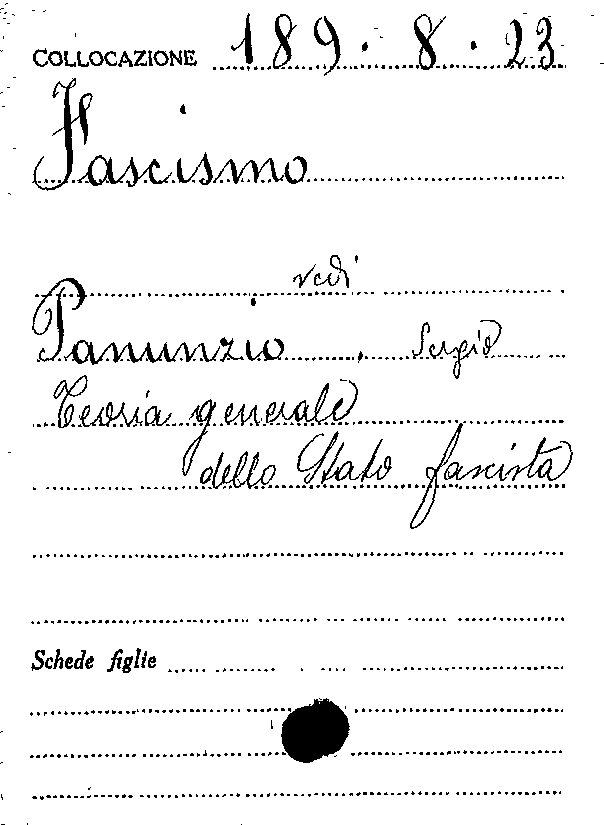 COLLOCAZIONE 189.8.23
Fascismo
vedi
Panunzio, Sergio
Teoria generale
dello Stato fascista
Schede figlie